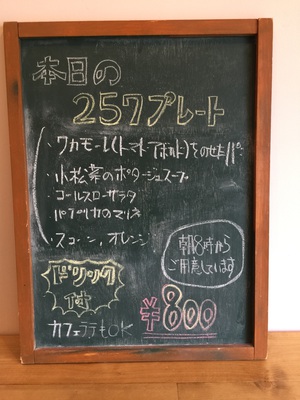 本日の
257プレート
・ワカモーレ(トマト アボカド)をのせたパン
・小松菜のポタージュスープ
コールスローサラダ
パプリカのマリネ
・スコーン, オレンジ
朝8時から
ご用意しています
ドリンク
付
カフェラテもOK
¥800